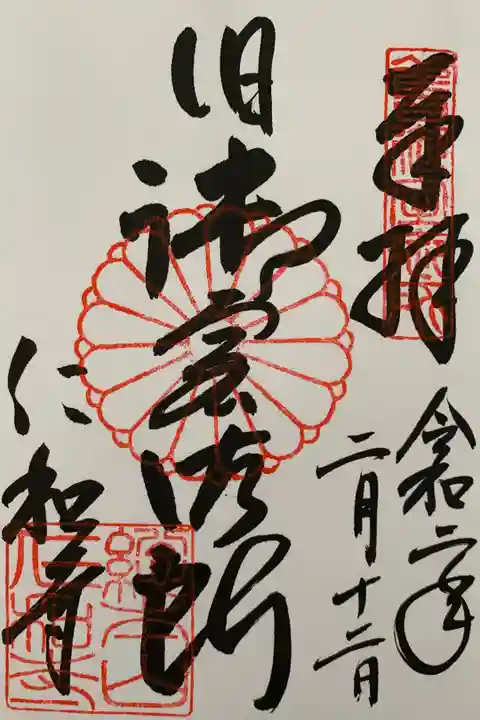 奉拝
令和二年
二月十二日
旧御室御所
仁和寺